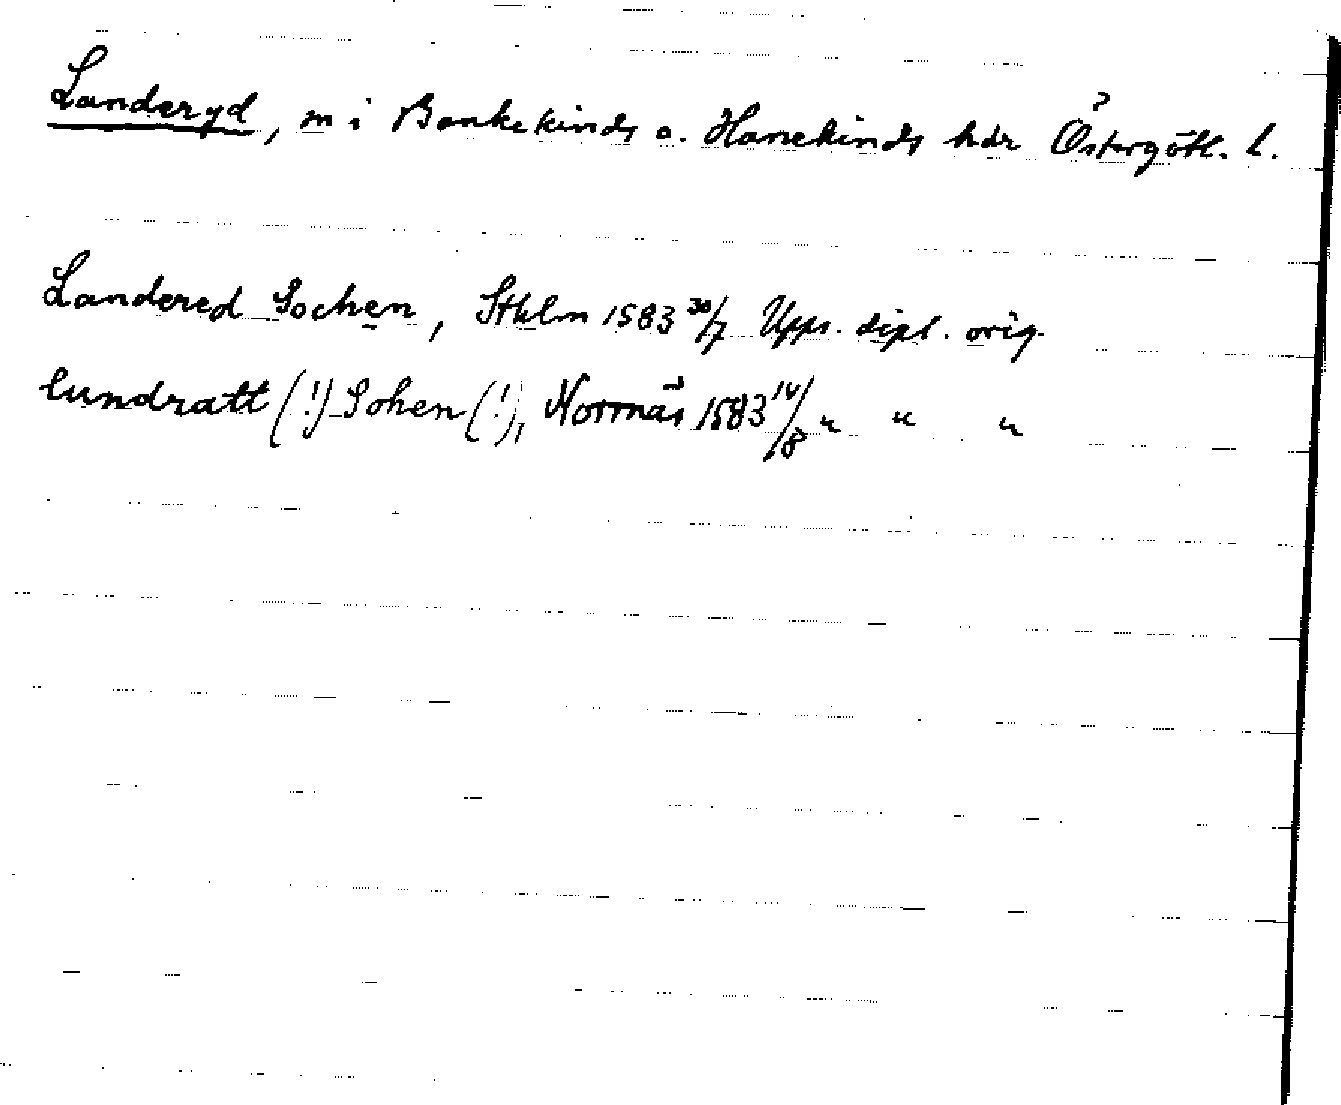 Landeryd, sn i Bankekinds o. Hanekinds hdr Östergötl. l.
Landered Sochen, Sthlm 1583 30/7 Upps. dipl. orig.
lundratt (!) Sohen (!), Norrnäs 1583 14/8 " " "